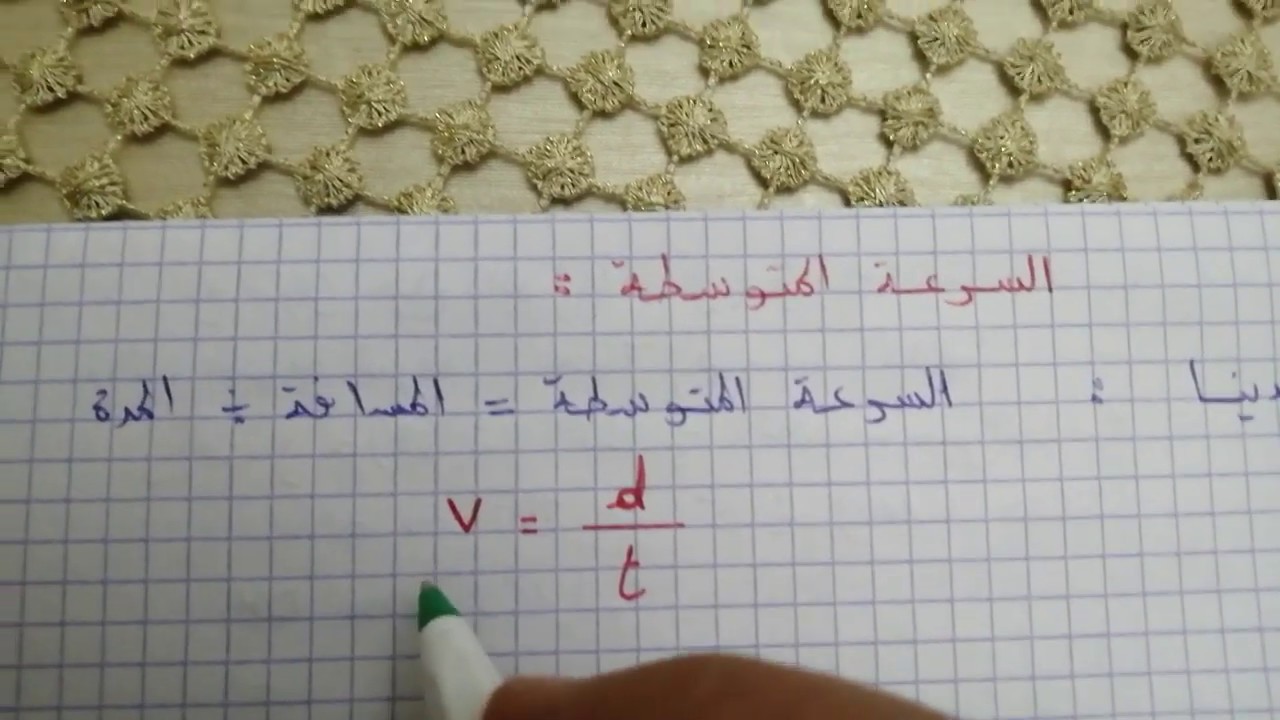 السرعة المتوسطة :
لدينا : السرعة المتوسطة = المسافة ÷ المدة
v = d
t